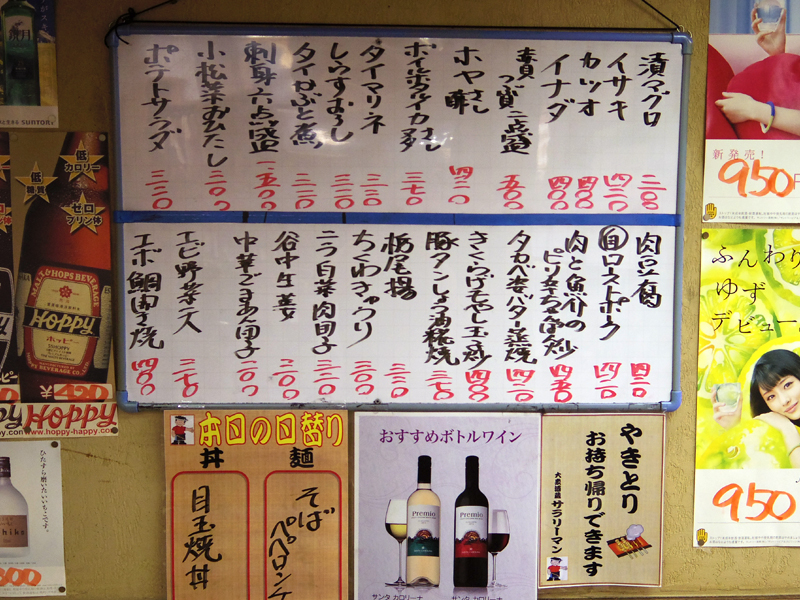 漬マグロ
イサキ 四二〇
カツオ 四〇〇
イナダ 四〇〇
つぶ貝二点盛 五〇〇
ホヤ 四二〇
ボイルホタルイカ 三七〇
タイマリネ
しらすおろし 三二〇
タイかぶと煮
刺身六点盛 一五〇〇
小松菜おひたし
ポテトサラダ 三二〇
肉豆腐 四二〇
自ロストポーク 四二〇
肉と魚介の
ピリ辛ちゃんぽん炒 四五〇
タカベ香バター塩焼 四二〇
きくらげもやし玉子炒 四〇〇
豚タンしょう油糀焼 三七〇
栃尾揚 三二〇
ちくわきゅうり 三〇〇
ニラ白菜肉団子 三二〇
谷中生姜 三〇〇
中華ごまあえ団子
エビ野菜天 三七〇
エボ鯛開き焼 四〇〇
SUNTORY
低カロリー
低糖質
ゼロプリン体
MALT & HOPS BEVERAGE
HOPPY
ホッピー
HOPPY BEVERAGE CO.
¥420
HOPPY
www.hoppy-happy.co
ひたすら磨いたいいもこです。
本日の日替り
麺
そば
ペペロンチ
丼
目玉焼丼
おすすめボトルワイン
Premio
Premio
サンタ カロリーナ
サンタ カロリーナ
やきとり
お持ち帰りできます
大衆酒蔵
サラリーマン
950
新発売!
950円
ふんわり
ゆず
デビュー
950